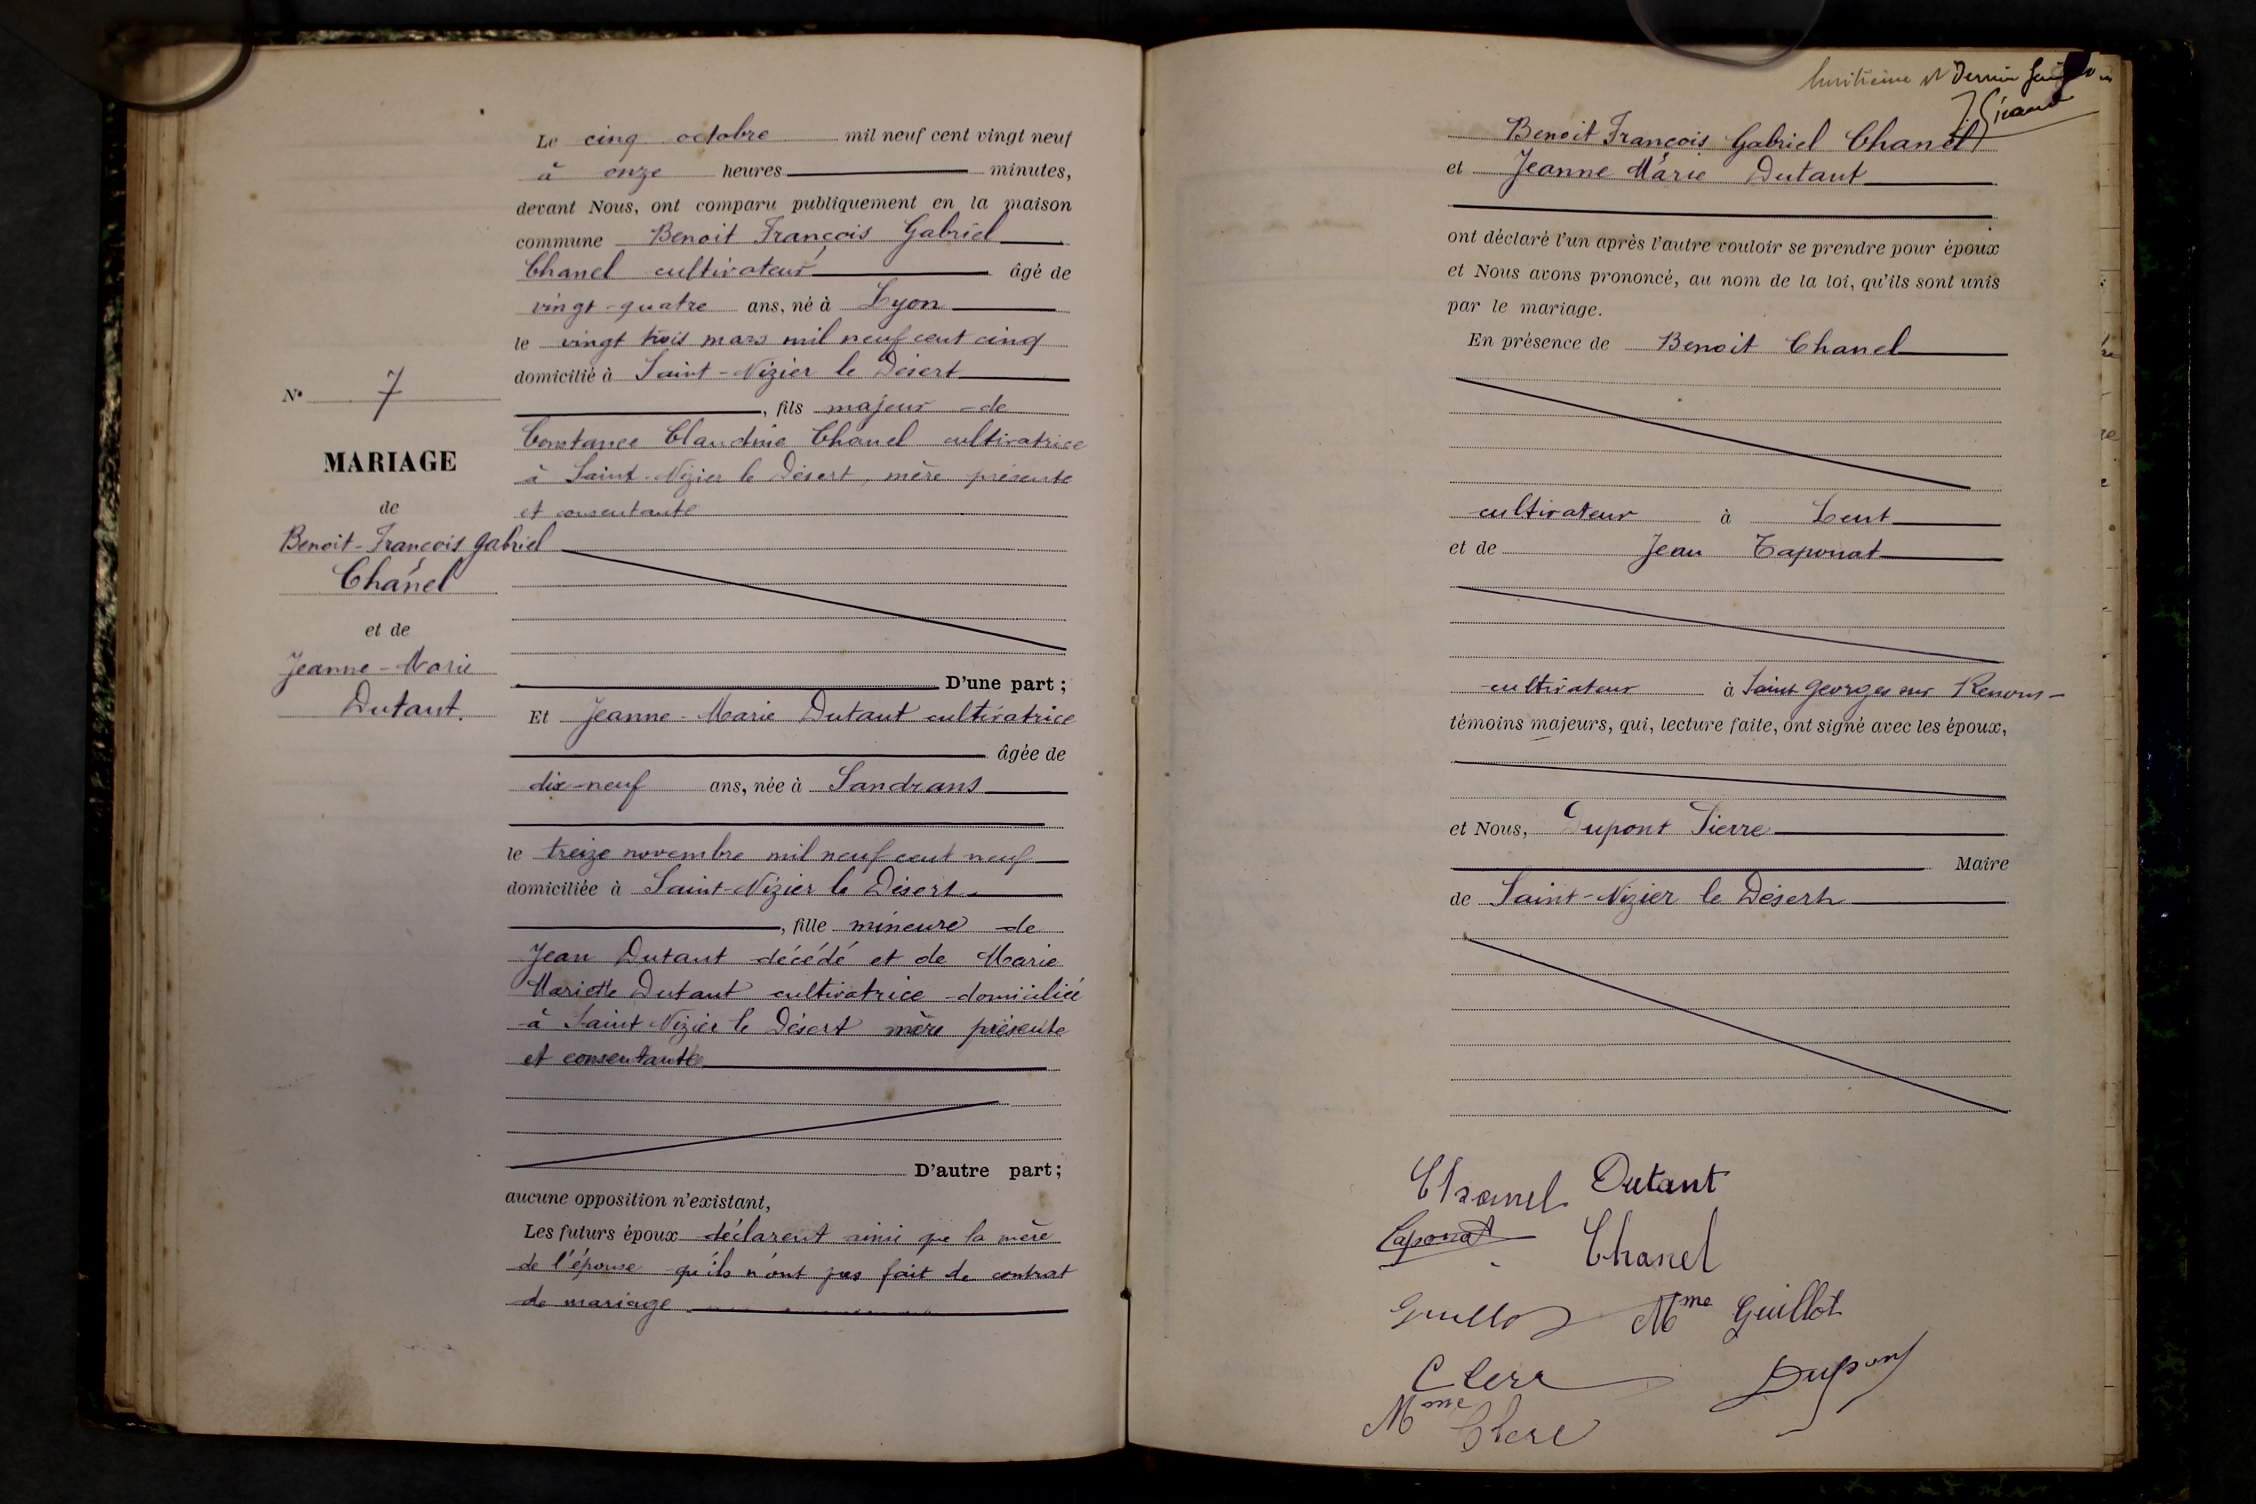 Le cinq octobre mil neuf cent vingt neuf
à onze heures minutes,
devant Nous, ont comparu publiquement en la maison
commune Benoit François Gabriel
Chanel cultivateur âgé de
vingt-quatre ans, né à Lyon
le vingt trois mars mil neuf cent cinq
domicilié à Saint-Nizier le Désert
, fils majeur de
Constance Claudine Chanel cultivatrice
à Saint-Nizier le Désert, mère présente
et consentante
D'une part ;
Et Jeanne-Marie Dutant cultivatrice
âgée de
dix-neuf ans, née à Sandrans
le treize novembre mil neuf cent neuf
domiciliée à Saint-Nizier le Désert
, fille mineure de
Jean Dutant décédé et de Marie
Mariette Dutant cultivatrice domiciliée
à Saint Nizier le Désert mère présente
et consentante
D'autre part ;
aucune opposition n'existant,
Les futurs époux déclarent ainsi que la mère
de l'épouse qu'ils n'ont pas fait de contrat
de mariage
N° 7
MARIAGE
de
Benoit-François Gabriel
Chanel
et de
Jeanne-Marie
Dutant.
huitième et Dernier
Benoit François Gabriel Chanel
et Jeanne Marie Dutant
ont déclaré l'un après l'autre vouloir se prendre pour époux
et Nous avons prononcé, au nom de la loi, qu'ils sont unis
par le mariage.
En présence de Benoit Chanel
cultivateur à Lent
et de Jean Taponat
cultivateur à Saint Georges sur Renom
témoins majeurs, qui, lecture faite, ont signé avec les époux,
et Nous, Dupont Pierre
Maire
de Saint-Nizier le Désert
Chanel Dutant
Taponat Chanel
Guillot Mme Guillot
Clerc Dupont
Mme Clerc